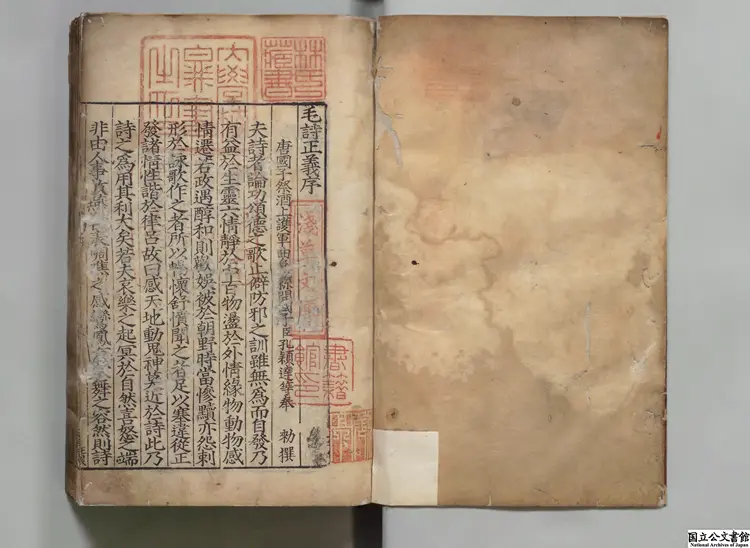 毛詩正義序
唐國子祭酒上護軍曲阜縣開國子臣孔穎達等奉 勅撰
夫詩者論功頌德之歌止僻防邪之訓雖無為而自發乃
有益於生靈六情靜於中百物盪於外情緣物動物感
情遷若政遇醇和則歡娛被於朝野時當慘黷亦怨刺
形於詠歌作之者所以暢懷舒憤聞之者足以塞違從正
發諸情性諧於律呂故曰感天地動鬼神莫近於詩此乃
詩之為用其利大矣若夫哀樂之起冥於自然喜怒之端
非由人事故燕雀表啁噍之感鸞鳳有歌舞之容然則詩
林氏藏書
淺草文庫
書籍館印
国立公文書館
National Archives of Japan